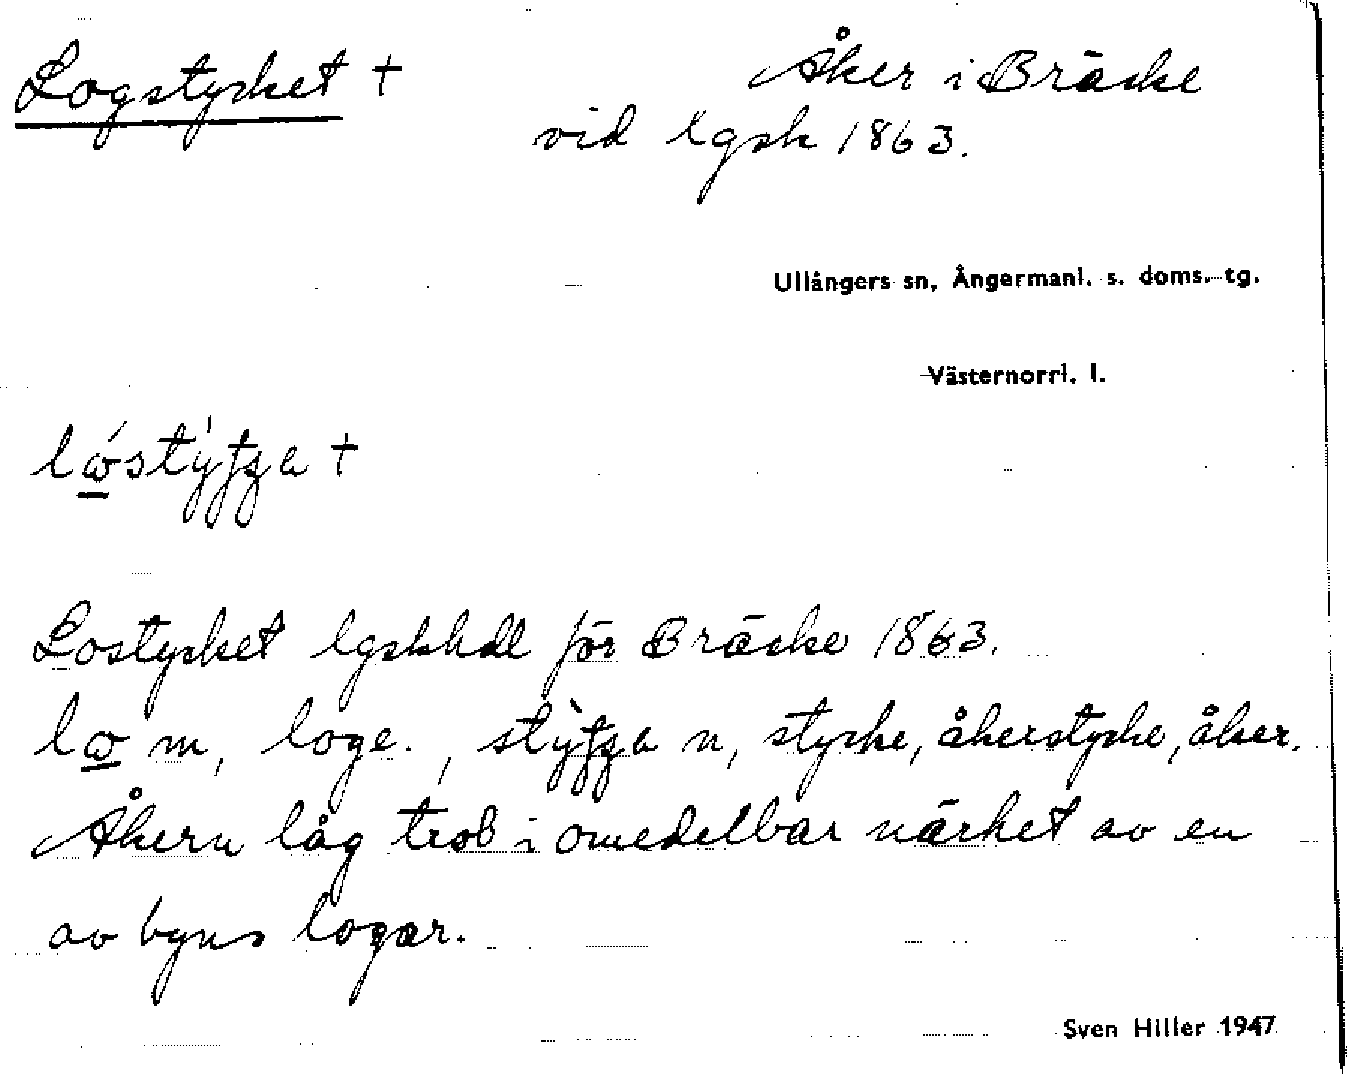 Logstycket + Åker i Bräcke
vid lgsk 1863.
Ullångers sn, Ångermanl. s. doms. tg.
Västernorrl. l.
Lostycket lgskhdl för Bräcke 1863.
m, loge., n, stycke, åkerstycke, åker.
Åkern låg trol i omedelbar närhet av en
av byns logar.
Sven Hiller 1947